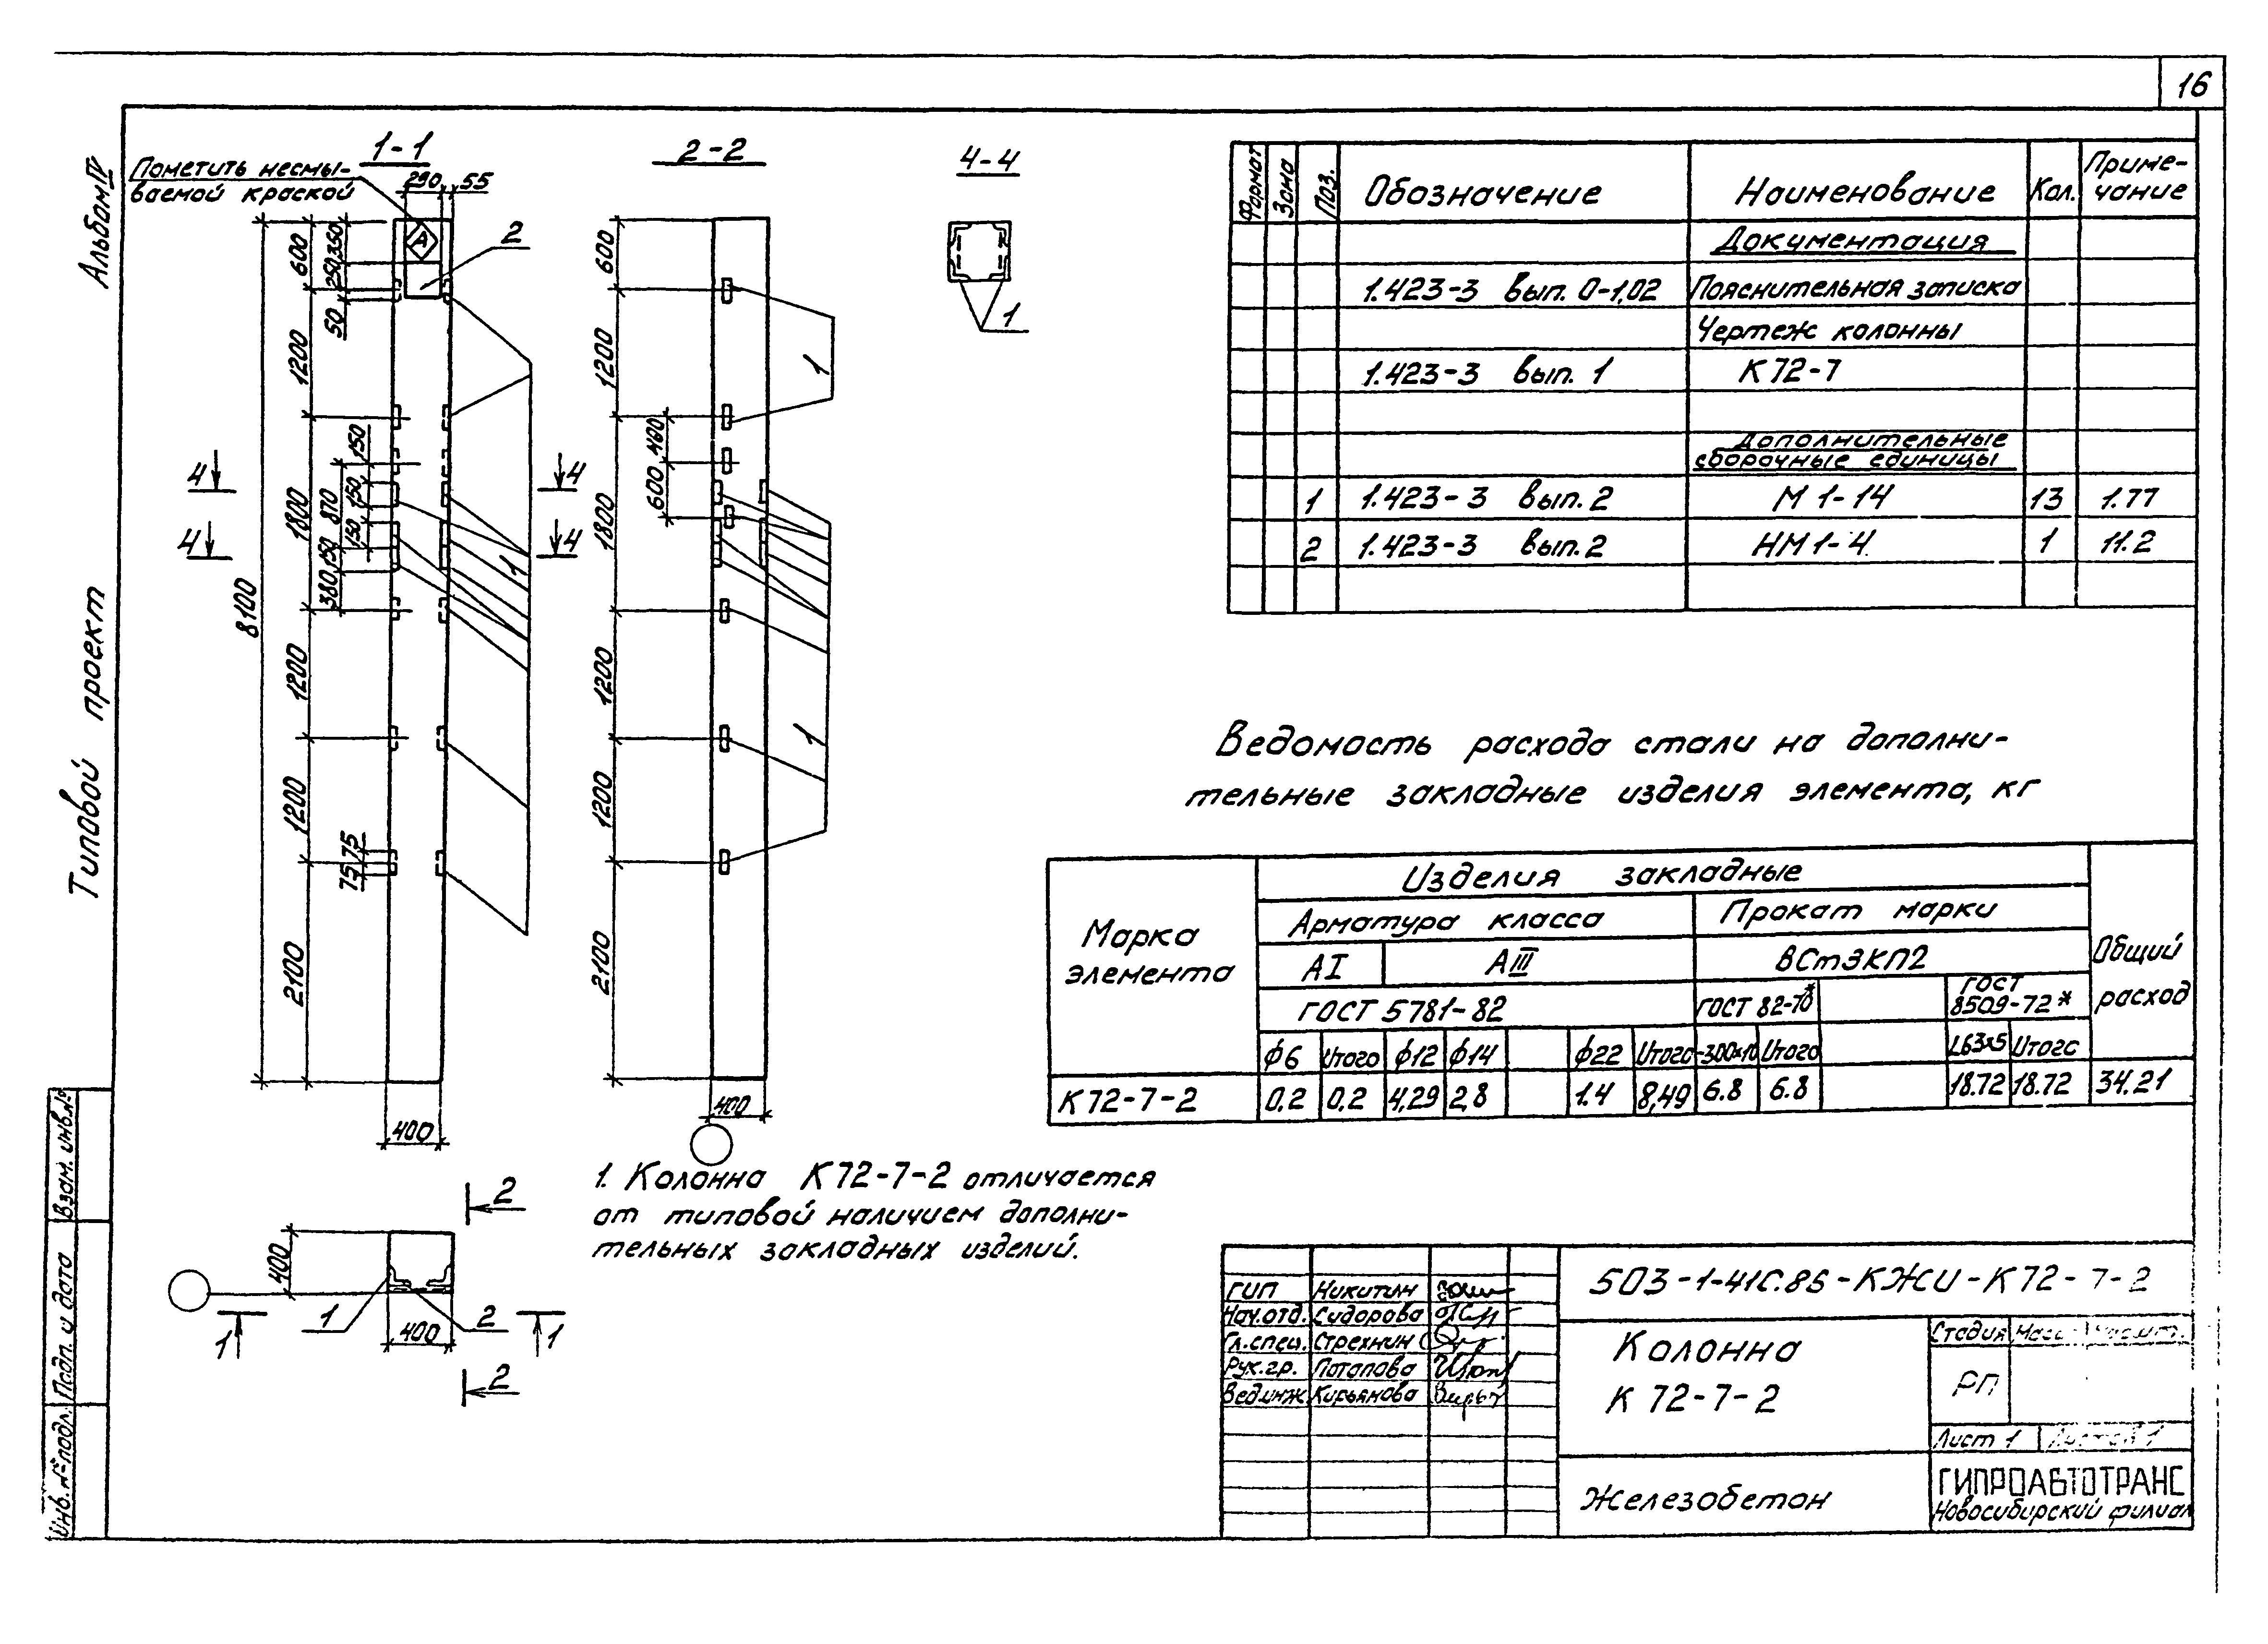 16
Альбом IV
Типовой проект
Взам. инв.№
Подп. и дата
Инв. № подл.
1-1
Пометить несмы-
ваемой краской
290 55
А
2
600 350 250 50
1200
150
4 4
1800 870 150
4 4
150 150 380
1
8100
1200
1200
75 75
2100
400
2-2
600
1200
1
400
600
1800
1200
1
1200
2100
400
4-4
1
2
400
1 2
1 400 1
2
1. Колонна К72-7-2 отличается
от типовой наличием дополни-
тельных закладных изделий.
Формат Зона Поз. Обозначение Наименование Кол. Приме-
чание
Документация
1.423-3 вып. 0-1,02 Пояснительная записка
Чертеж колонны
1.423-3 вып. 1 К72-7
Дополнительные
сборочные единицы
1 1.423-3 вып. 2 М 1-14 13 1.77
2 1.423-3 вып. 2 НМ 1-4 1 11.2
Ведомость расхода стали на дополни-
тельные закладные изделия элемента, кг
Марка
элемента
Изделия закладные
Арматура класса Прокат марки
АI АIII ВСт3КП2
Общий
расход
ГОСТ 5781-82 ГОСТ 82-70* ГОСТ
8509-72*
ф6 Итого ф12 ф14 ф22 Итого -300х10 Итого L63х5 Итого
К72-7-2 0,2 0,2 4,29 2,8 1.4 8,49 6.8 6.8 18.72 18.72 34.21
ГИП Никитин
Нач.отд. Сидорова
Гл.спец. Стрехнин
Рук.гр. Потапова
Вед.инж Кирьянова
503-1-41С.85-КЖИ-К72-7-2
Колонна
К 72-7-2
Стадия Масса Масшт.
РП
Лист 1 Листов 1
Железобетон
ГИПРОАВТОТРАНС
Новосибирский филиал